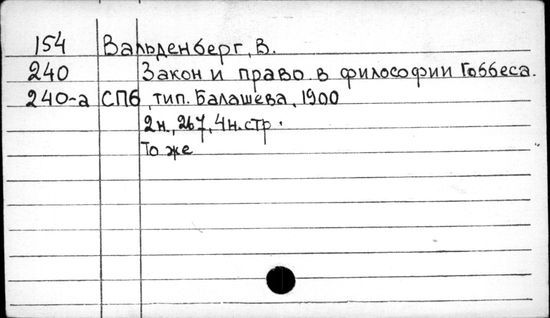 154 Вальденберг, В.
240 Закон и право в философии Гоббеса.
240-а СПб, тип. Балашева, 1900
2н., 267, 4н. стр.
То же